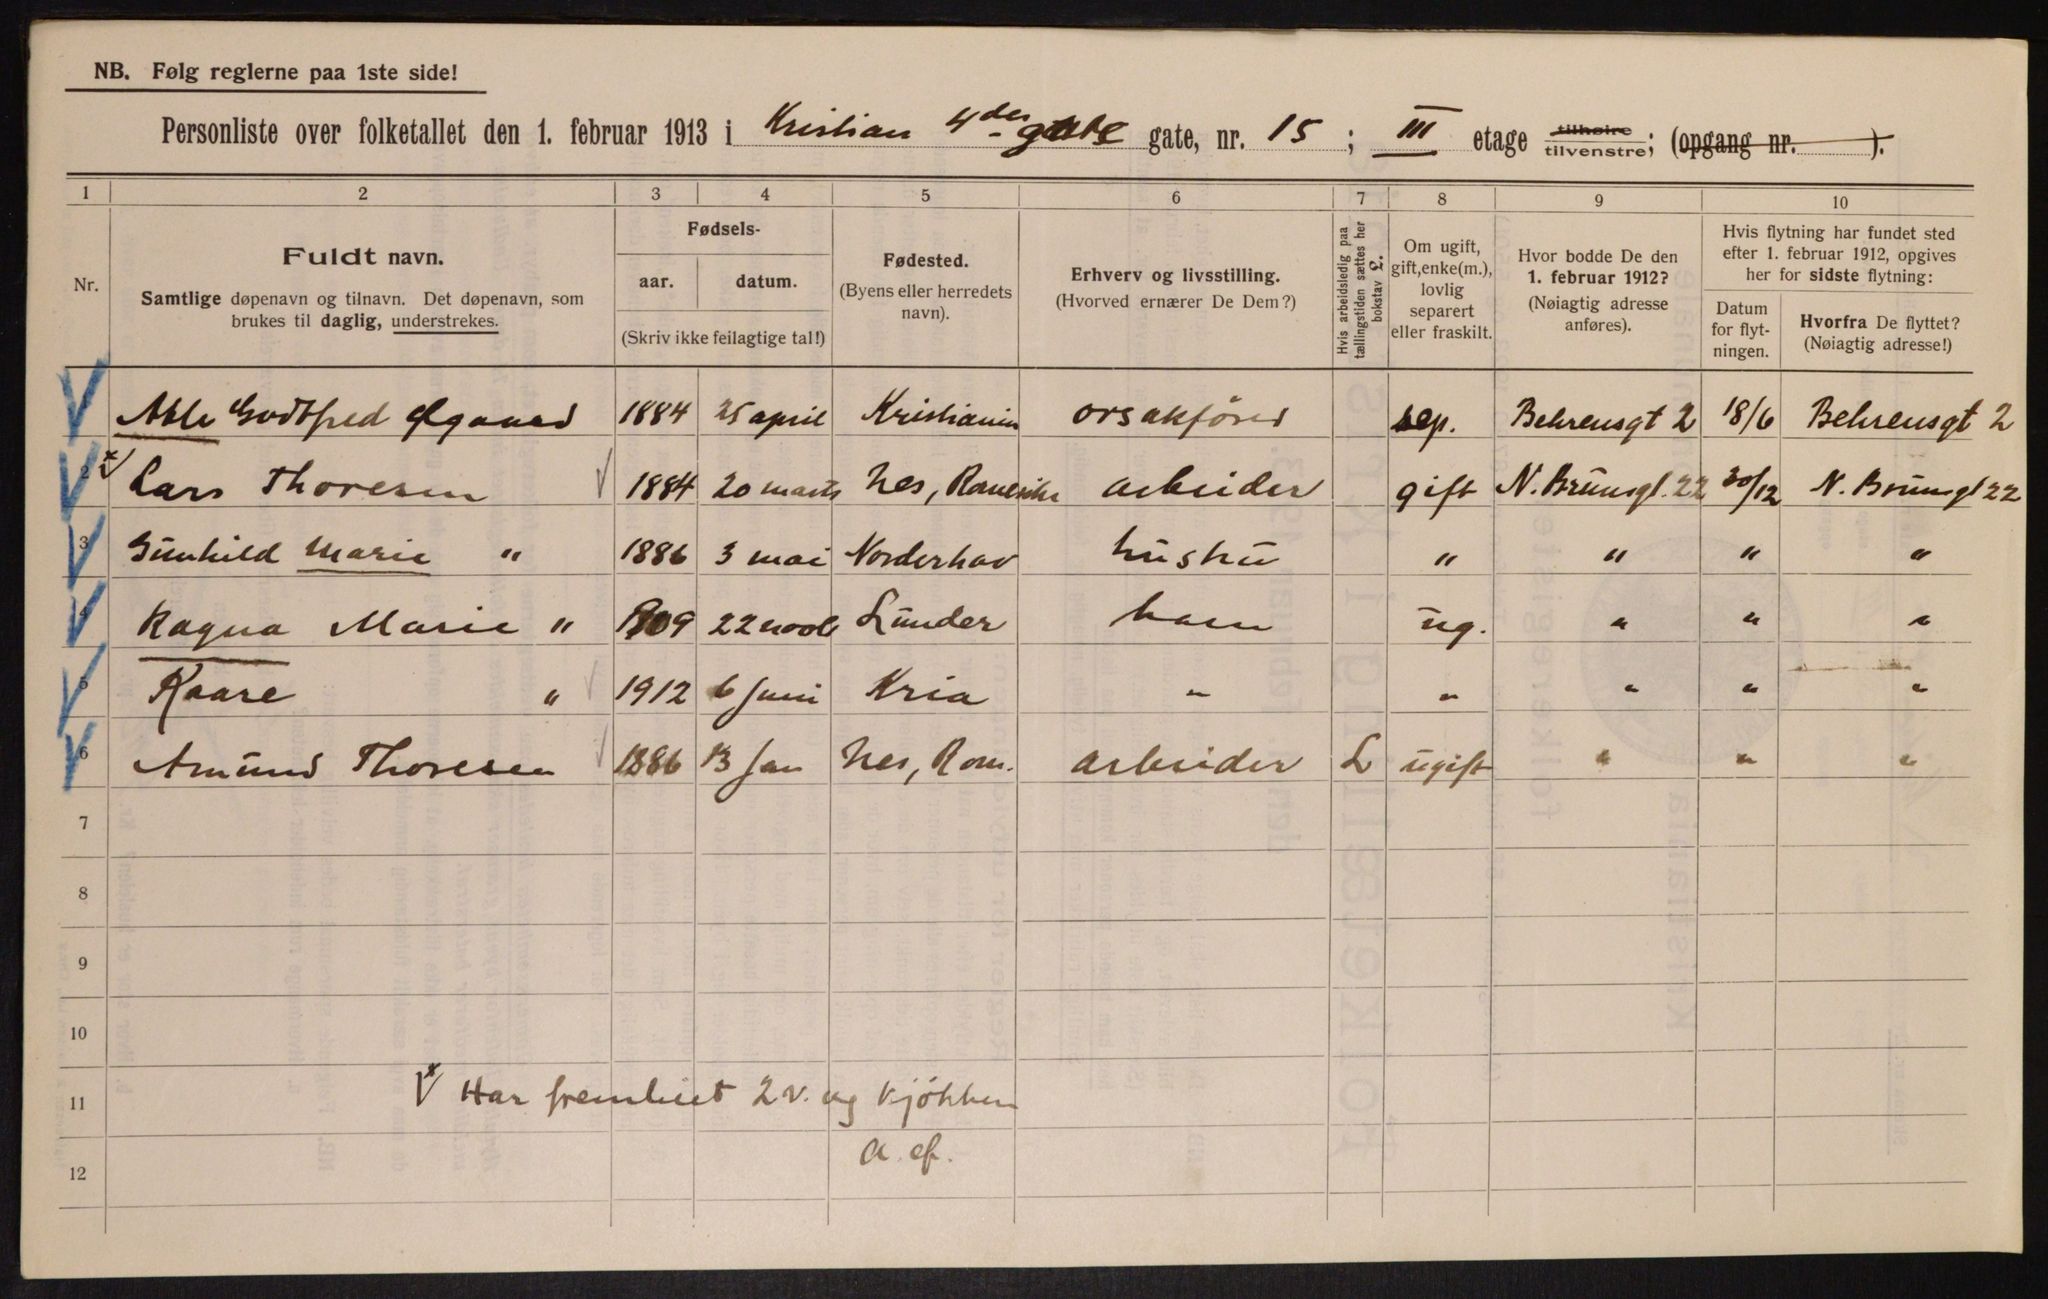 NB. Følg reglerne paa 1ste side!
Personliste over folketallet den 1. februar 1913 i Kristian 4des gate gate, nr. 15; III etage tilhøire tilvenstre; (opgang nr. ).
1 2 3 4 5 6 7 8 9 10
Nr.
Fuldt navn.
Samtlige døpenavn og tilnavn. Det døpenavn, som
brukes til daglig, understrekes.
Fødsels-
aar. datum.
(Skriv ikke feilagtige tal!)
Fødested.
(Byens eller herredets
navn).
Erhverv og livsstilling.
(Hvorved ernærer De Dem?)
Hvis arbeidsledig paa
tællingstiden sættes her
bokstav L.
Om ugift,
gift, enke(m.),
lovlig
separert
eller fraskilt.
Hvor bodde De den
1. februar 1912?
(Nøiagtig adresse
anføres).
Hvis flytning har fundet sted
efter 1. februar 1912, opgives
her for sidste flytning:
Datum
for flyt-
ningen.
Hvorfra De flyttet?
(Nøiagtig adresse!)
Godtfred 1884 25 april Kristiania sep. Behrensgt 2 18/6 Behrensgt 2
2 Lars Thoresen 1884 20 marts Nes, Romerike arbeider gift N. Brunsgt. 22 30/12 N. Brunsgt 22
3 Gunhild Marie " 1886 3 mai Norderhov hustru " " " "
4 Ragna Marie " 1909 22 novb Lunder barn ug. " " "
5 Kaare " 1912 6 juni Kria " " " " "
6 Amund Thoresen 1886 13 jan Nes, Rom. arbeider L ugift " " "
7
8
9
10
11 Har fremleiet 2 v. og kjøkken
12